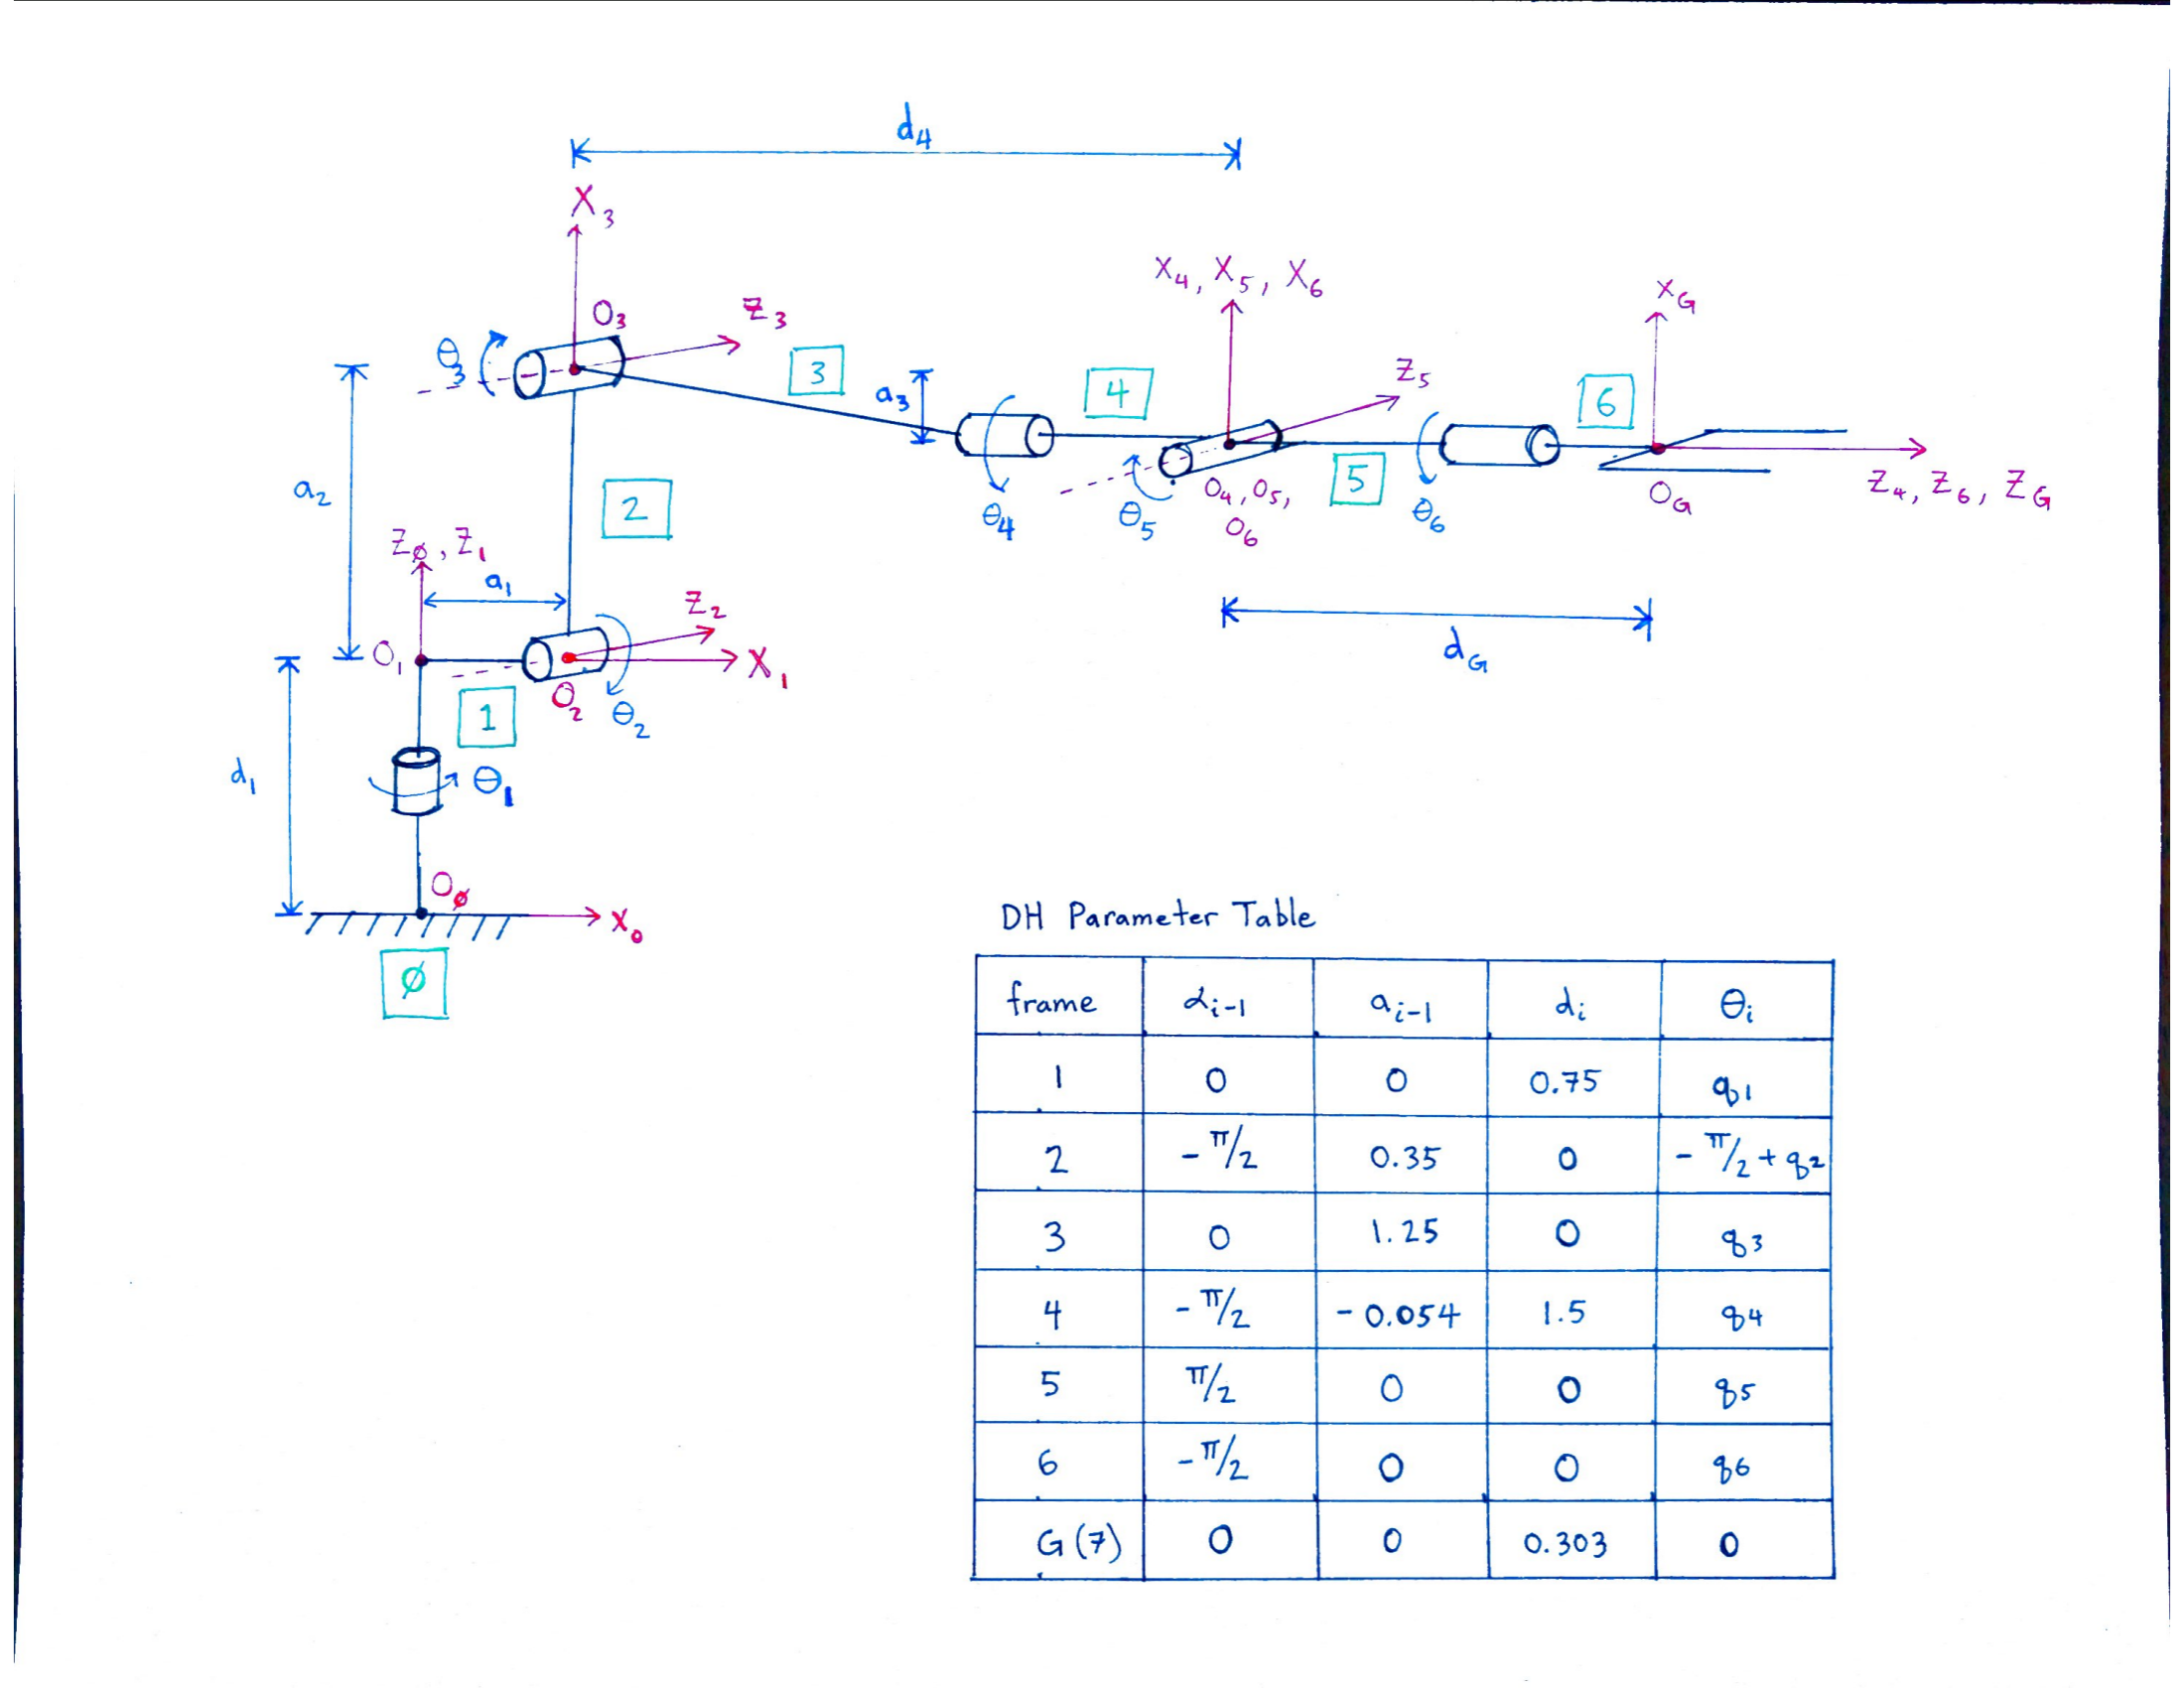 d4
X3
O3
Z3
θ3
3
a3
4
X4, X5, X6
Z5
6
XG
a2
2
θ4
θ5
O4, O5,
O6
5
θ6
OG
Z4, Z6, ZG
Zø, Z1
a1
Z2
O1
X1
dG
1
O2
θ2
d1
θ1
Oø
X0
ø
DH Parameter Table
frame αi-1 ai-1 di θi
1 0 0 0.75 q1
2 -π/2 0.35 0 -π/2 + q2
3 0 1.25 0 q3
4 -π/2 -0.054 1.5 q4
5 π/2 0 0 q5
6 -π/2 0 0 q6
G(7) 0 0 0.303 0